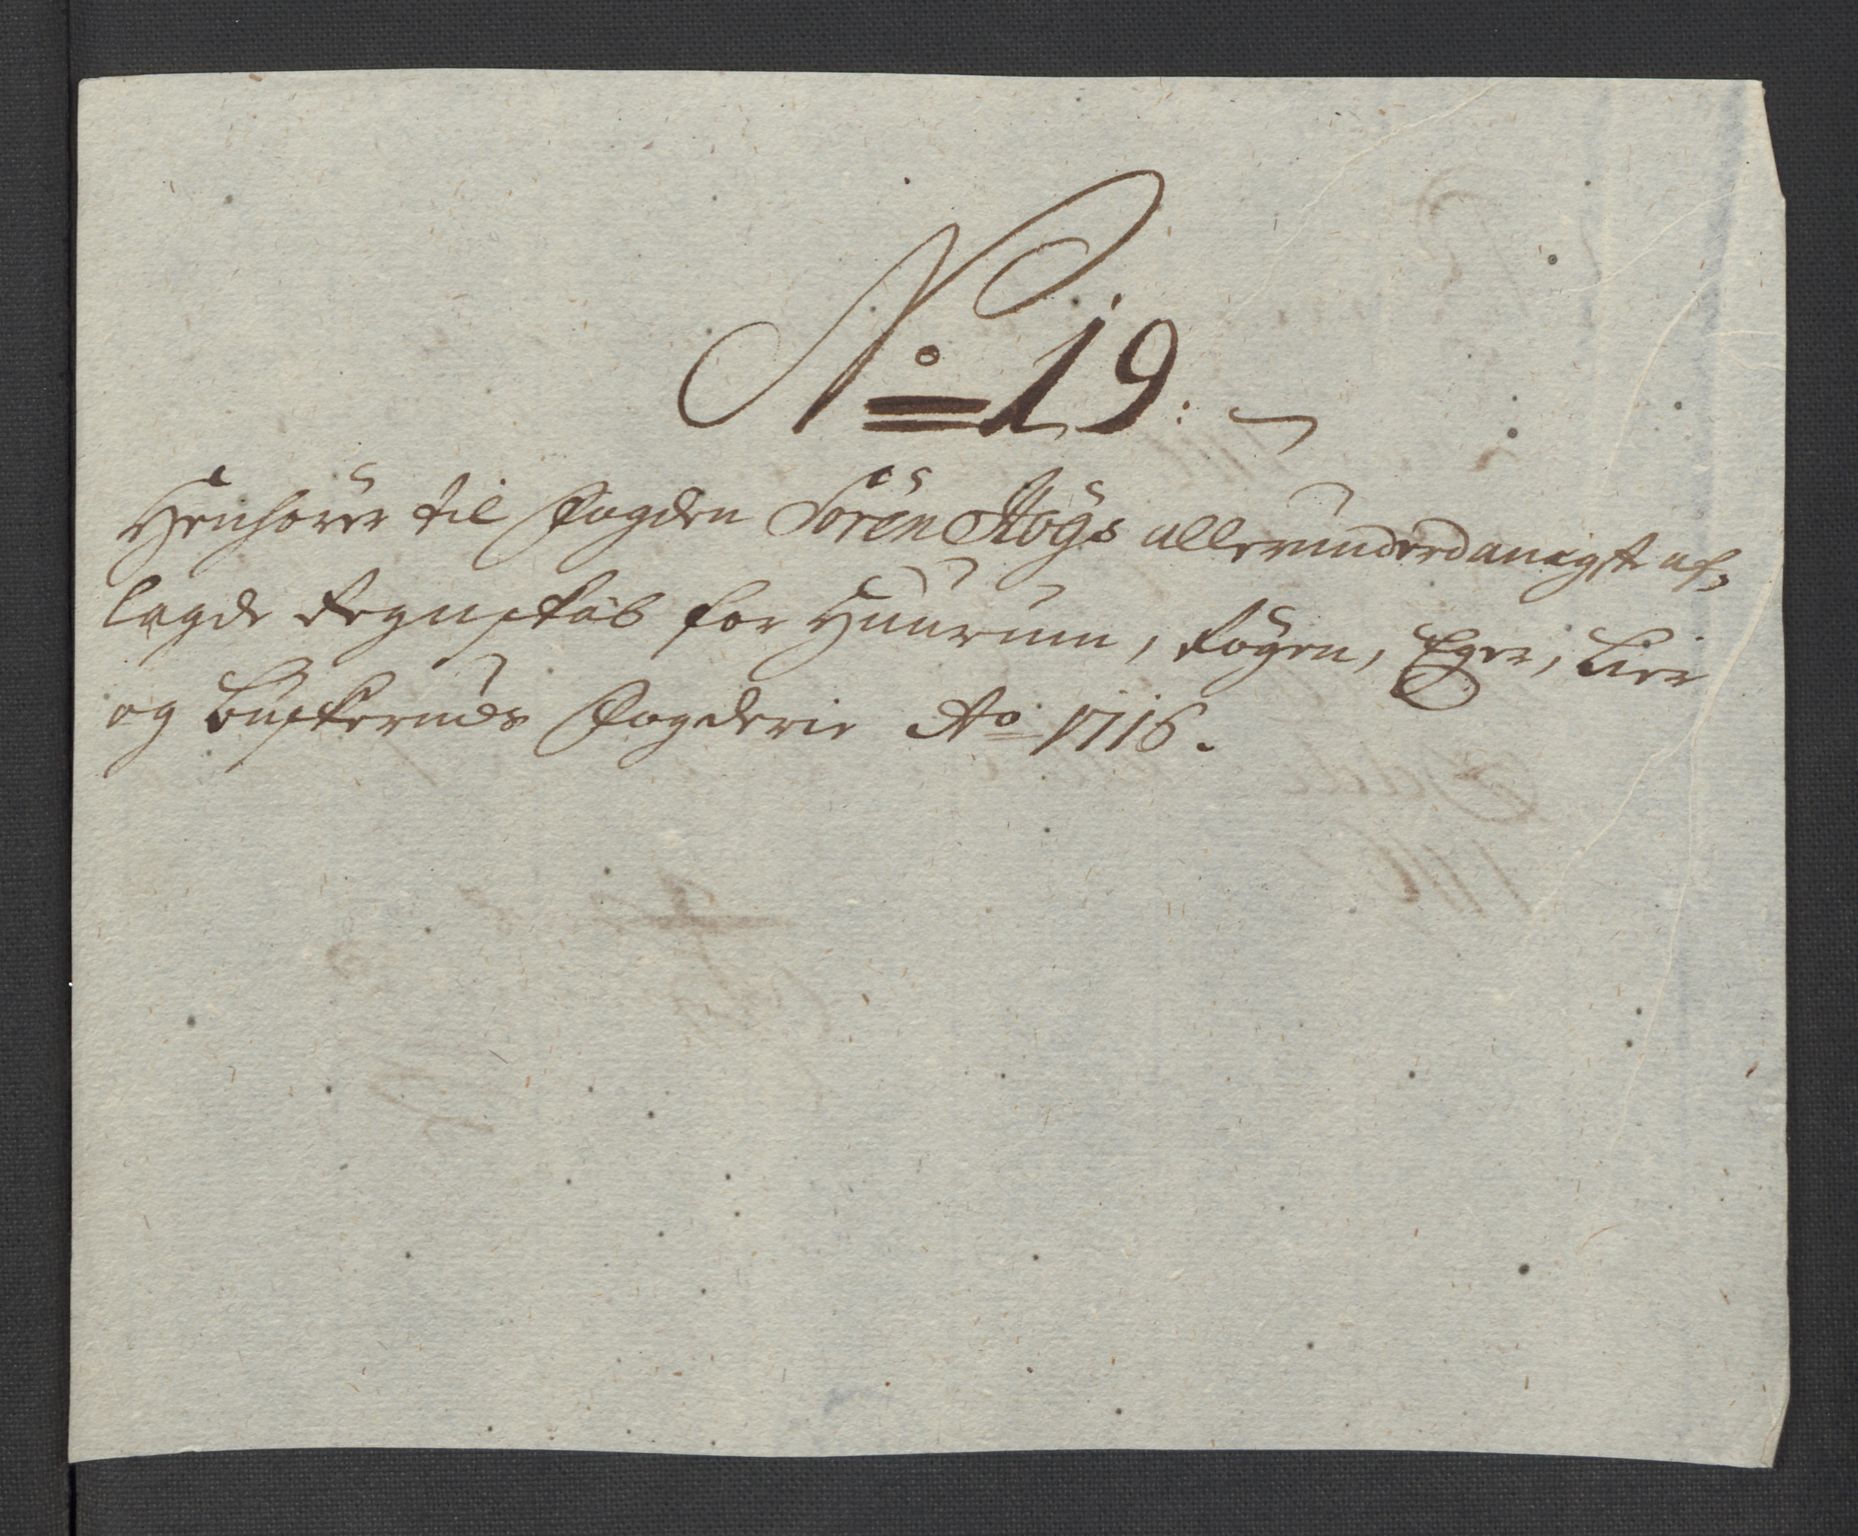 No 19.
Henhörer til Fogden Sören Høys allerunderdanigst af-
lagde Regnskab for Huurum, Rögen, Eger, Lier
og Buskeruds Fogderie Ao 1716.